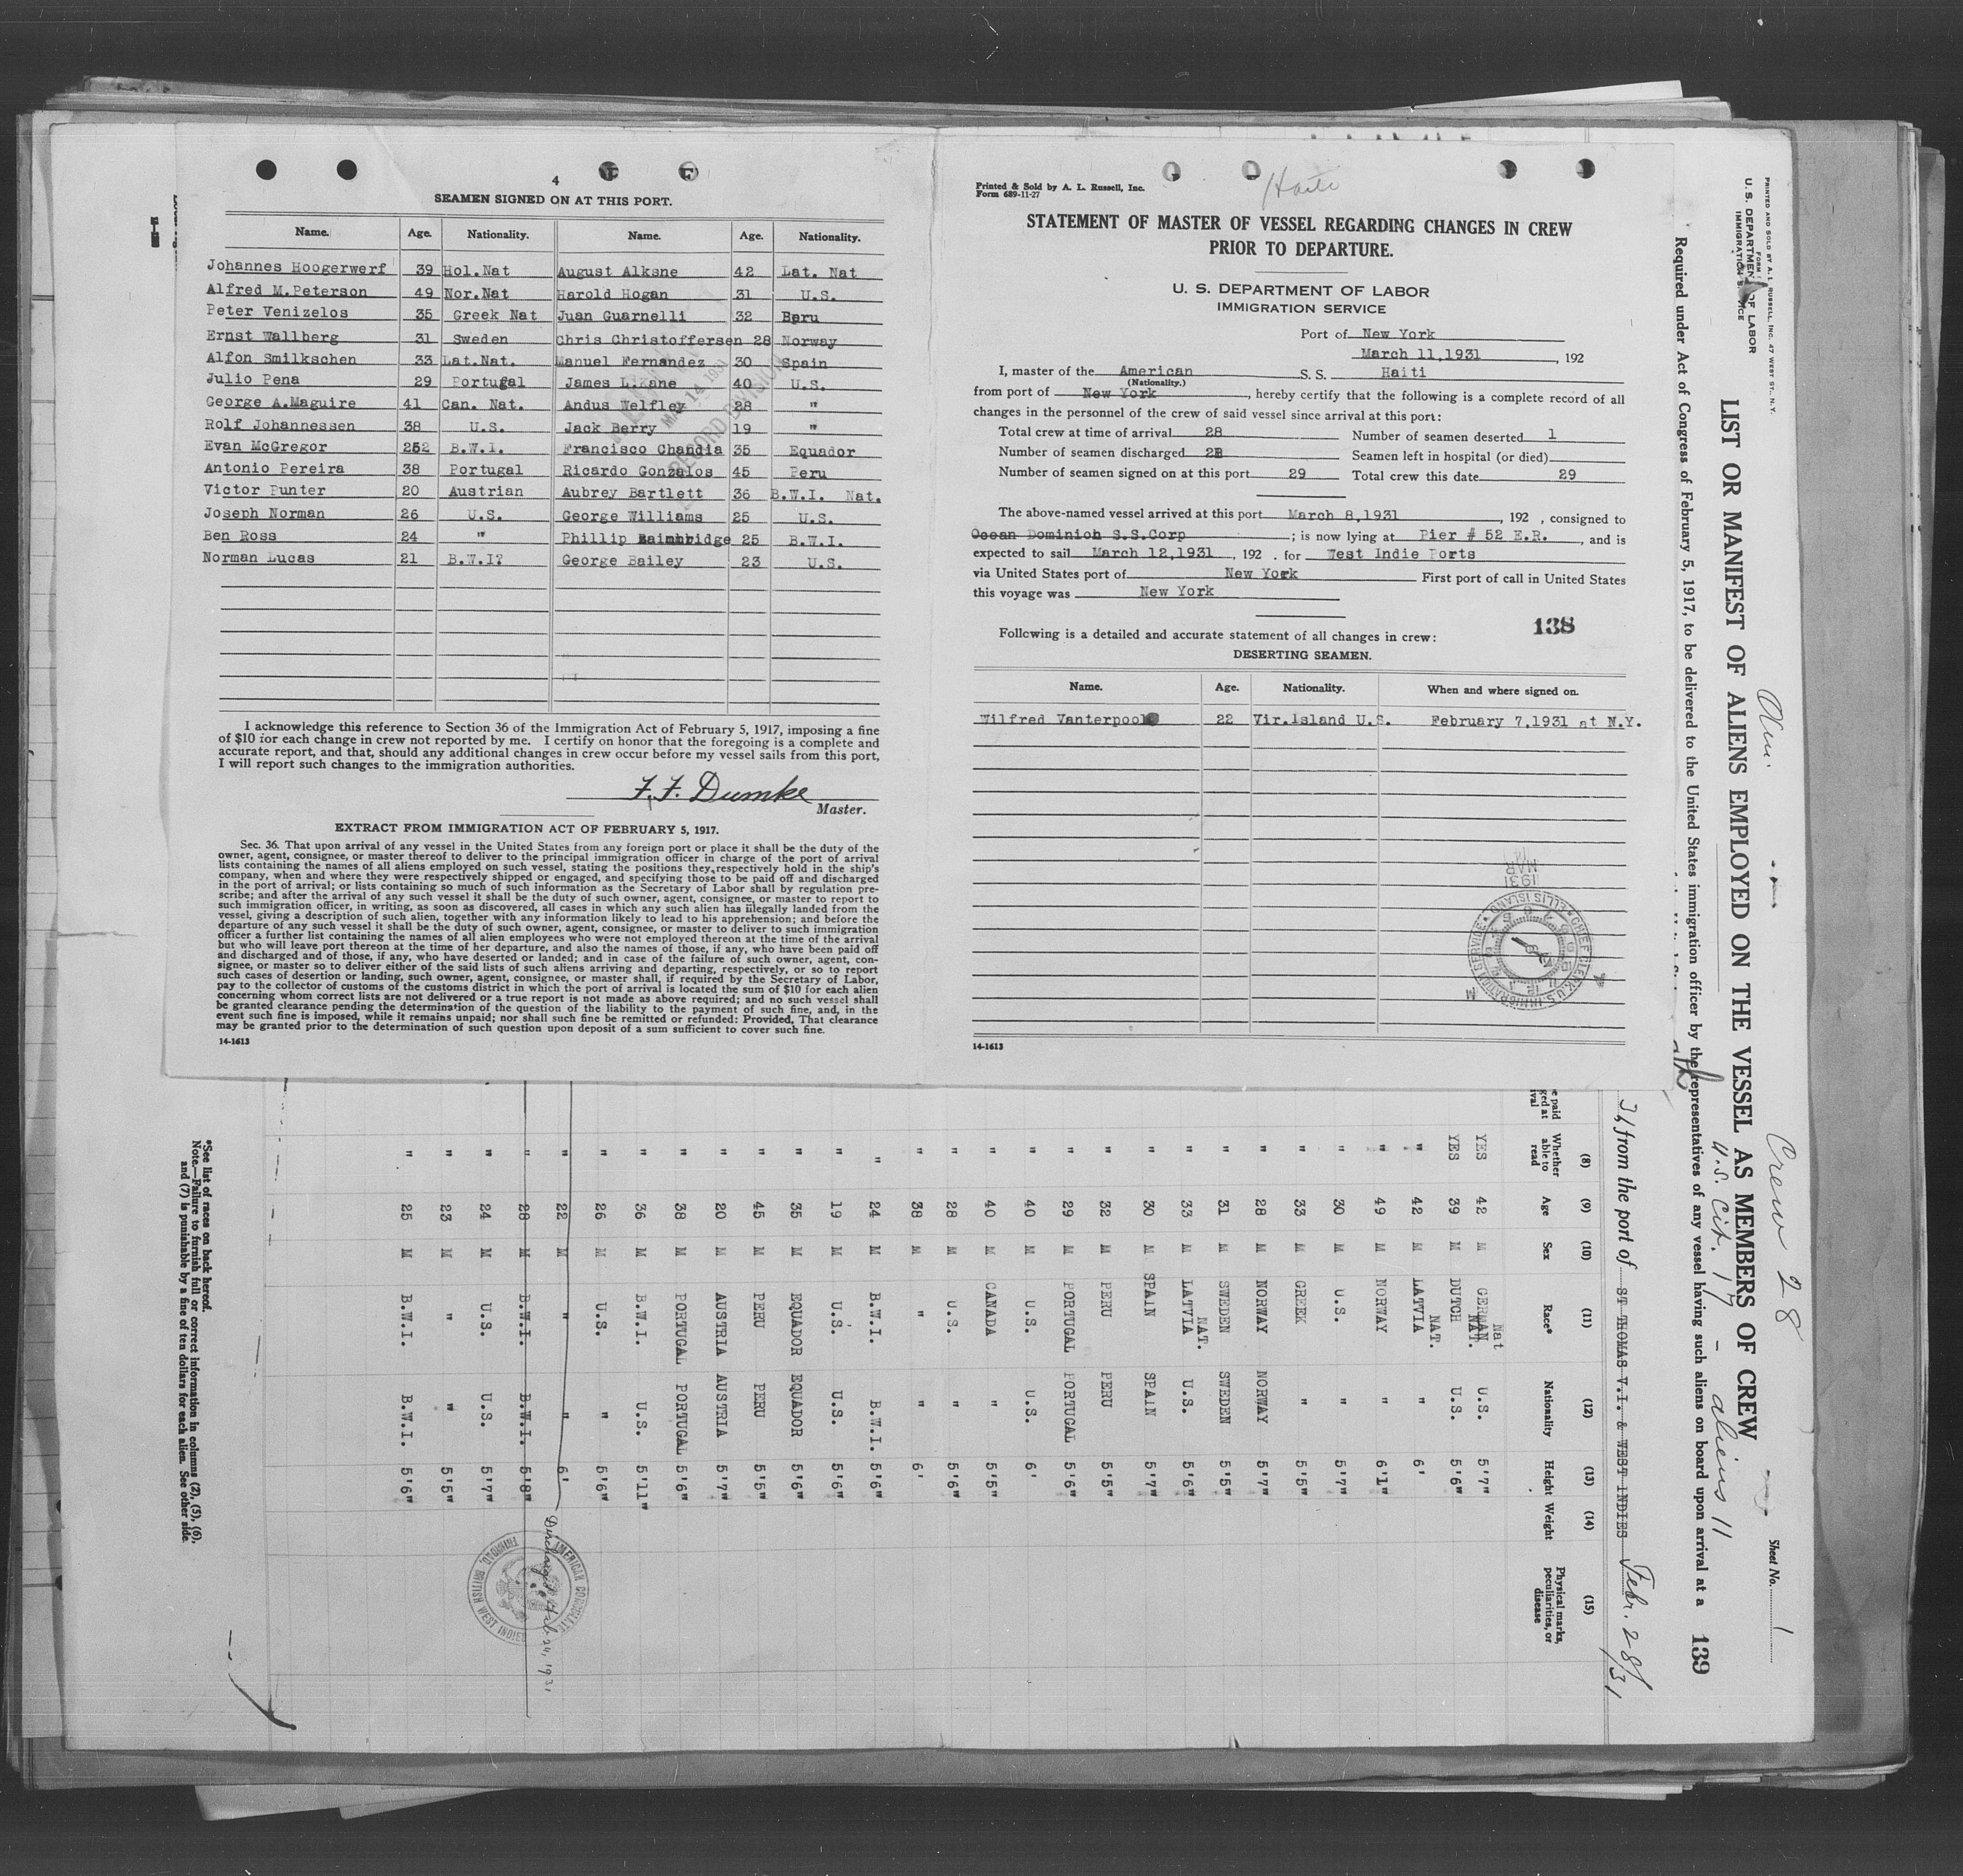 4
SEAMEN SIGNED ON AT THIS PORT.
Name. Age. Nationality. Name. Age. Nationality.
Johannes Hoogerwerf 39 Hol.Nat August Alksne 42 Lat. Nat
Alfred M.Peterson 49 Nor.Nat Harold Hogan 31 U.S.
Peter Venizelos 35 Greek Nat Juan Guarnelli 32 Peru
Ernst Wallberg 31 Sweden Chris Christoffersen 28 Norway
Alfon Smilkschen 33 Lat.Nat. Manuel Fernandez 30 Spain
Julio Pena 29 Portugal James L.Kane 40 U.S.
George A.Maguire 41 Can. Nat. Andus Welfley 28 "
Rolf Johannessen 38 U.S. Jack Berry 19 "
Evan McGregor 252 B.W.I. Francisco Chandia 35 Equador
Antonio Pereira 38 Portugal Ricardo Gonzalos 45 Peru
Victor Punter 20 Austrian Aubrey Bartlett 36 B.W.I. Nat.
Joseph Norman 26 U.S. George Williams 25 U.S.
Ben Ross 24 " Phillip Bainbridge 25 B.W.I.
Norman Lucas 21 B.W.I? George Bailey 23 U.S.
MAR 14 1931
RECORD DIVISION
I acknowledge this reference to Section 36 of the Immigration Act of February 5, 1917, imposing a fine
of $10 for each change in crew not reported by me. I certify on honor that the foregoing is a complete and
accurate report, and that, should any additional changes in crew occur before my vessel sails from this port,
I will report such changes to the immigration authorities.
F. F. Dumke
Master.
EXTRACT FROM IMMIGRATION ACT OF FEBRUARY 5, 1917.
Sec. 36. That upon arrival of any vessel in the United States from any foreign port or place it shall be the duty of the
owner, agent, consignee, or master thereof to deliver to the principal immigration officer in charge of the port of arrival
lists containing the names of all aliens employed on such vessel, stating the positions they respectively hold in the ship's
company, when and where they were respectively shipped or engaged, and specifying those to be paid off and discharged
in the port of arrival; or lists containing so much of such information as the Secretary of Labor shall by regulation pre-
scribe; and after the arrival of any such vessel it shall be the duty of such owner, agent, consignee, or master to report to
such immigration officer, in writing, as soon as discovered, all cases in which any such alien has illegally landed from the
vessel, giving a description of such alien, together with any information likely to lead to his apprehension; and before the
departure of any such vessel it shall be the duty of such owner, agent, consignee, or master to deliver to such immigration
officer a further list containing the names of all alien employees who were not employed thereon at the time of the arrival
but who will leave port thereon at the time of her departure, and also the names of those, if any, who have been paid off
and discharged and of those, if any, who have deserted or landed; and in case of the failure of such owner, agent, con-
signee, or master so to deliver either of the said lists of such aliens arriving and departing, respectively, or so to report
such cases of desertion or landing, such owner, agent, consignee, or master shall, if required by the Secretary of Labor,
pay to the collector of customs of the customs district in which the port of arrival is located the sum of $10 for each alien
concerning whom correct lists are not delivered or a true report is not made as above required; and no such vessel shall
be granted clearance pending the determination of the question of the liability to the payment of such fine, and, in the
event such fine is imposed, while it remains unpaid; nor shall such fine be remitted or refunded: Provided, That clearance
may be granted prior to the determination of such question upon deposit of a sum sufficient to cover such fine.
14-1613
Printed & Sold by A. L. Russell, Inc.
Form 689-11-27
Haiti
STATEMENT OF MASTER OF VESSEL REGARDING CHANGES IN CREW
PRIOR TO DEPARTURE.
U. S. DEPARTMENT OF LABOR
IMMIGRATION SERVICE
Port of New York
March 11,1931 , 192
I, master of the American S. S. Haiti
(Nationality.)
from port of New York , hereby certify that the following is a complete record of all
changes in the personnel of the crew of said vessel since arrival at this port:
Total crew at time of arrival 28 Number of seamen deserted 1
Number of seamen discharged 28 Seamen left in hospital (or died)
Number of seamen signed on at this port 29 Total crew this date 29
The above-named vessel arrived at this port March 8,1931 , 192 , consigned to
Ocean Dominion S.S.Corp ; is now lying at Pier # 52 E.R. , and is
expected to sail March 12,1931 , 192 . for West Indie Ports
via United States port of New York First port of call in United States
this voyage was New York
138
Following is a detailed and accurate statement of all changes in crew:
DESERTING SEAMEN.
Name. Age. Nationality. When and where signed on.
Wilfred Vanterpool 22 Vir.Island U.S. February 7,1931 at N.Y.
MAR 14 1931
CHIEF CLERK U.S. IMMIGRATION SERVICE ELLIS ISLAND
14-1613
PRINTED AND SOLD BY A. L. RUSSELL, INC. 47 WEST ST., N.Y.
U. S. DEPARTMENT OF LABOR
Crew 28
Sheet No. 1
LIST OR MANIFEST OF ALIENS EMPLOYED ON THE VESSEL AS MEMBERS OF CREW
U.S. Cit. 17 - aliens 11
Required under Act of Congress of February 5, 1917, to be delivered to the United States immigration officer by the representatives of any vessel having such aliens on board upon arrival at a
139
31, from the port of ST THOMAS V.I. & WEST INDIES Febr. 28/31
(8) (9) (10) (11) (12) (13) (14) (15)
Whether able to read Age Sex Race* Nationality Height Weight Physical marks, peculiarities, or disease
YES 42 M GERMAN NAT. Nat U.S. 5'7"
YES 39 M DUTCH NAT. U.S. 5'6"
" 42 M LATVIA " 6'
" 49 M NORWAY " 6'1"
" 30 M U.S. " 5'7"
" 33 M GREEK " 5'5"
" 28 M NORWAY NORWAY 5'7"
" 31 M SWEDEN SWEDEN 5'5"
" 33 M LATVIA NAT. U.S. 5'6"
" 30 M SPAIN SPAIN 5'7"
" 32 M PERU PERU 5'5"
" 29 M PORTUGAL PORTUGAL 5'6"
" 40 M U.S. U.S. 6'
" 40 M CANADA " 5'5"
" 28 M U.S. " 5'6"
" 38 M " " 6'
" 24 M B.W.I. B.W.I. 5'6"
" 19 M U.S. U.S. 5'6"
" 35 M EQUADOR EQUADOR 5'6"
" 45 M PERU PERU 5'5"
" 20 M AUSTRIA AUSTRIA 5'7"
" 38 M PORTUGAL PORTUGAL 5'6"
" 36 M B.W.I. U.S. 5'11"
" 26 M U.S. " 5'6"
" 22 M " " 6' Discharged Feb 24, 1931
" 28 M B.W.I. B.W.I. 5'8"
" 24 M U.S. U.S. 5'7"
" 23 M " " 5'5"
" 25 M B.W.I. B.W.I. 5'6"
AMERICAN CONSULATE TRINIDAD, BRITISH WEST INDIES
*See list of races on back hereof.
Note.—Failure to furnish full or correct information in columns (2), (5), (6),
and (7) is punishable by a fine of ten dollars for each alien. See other side.